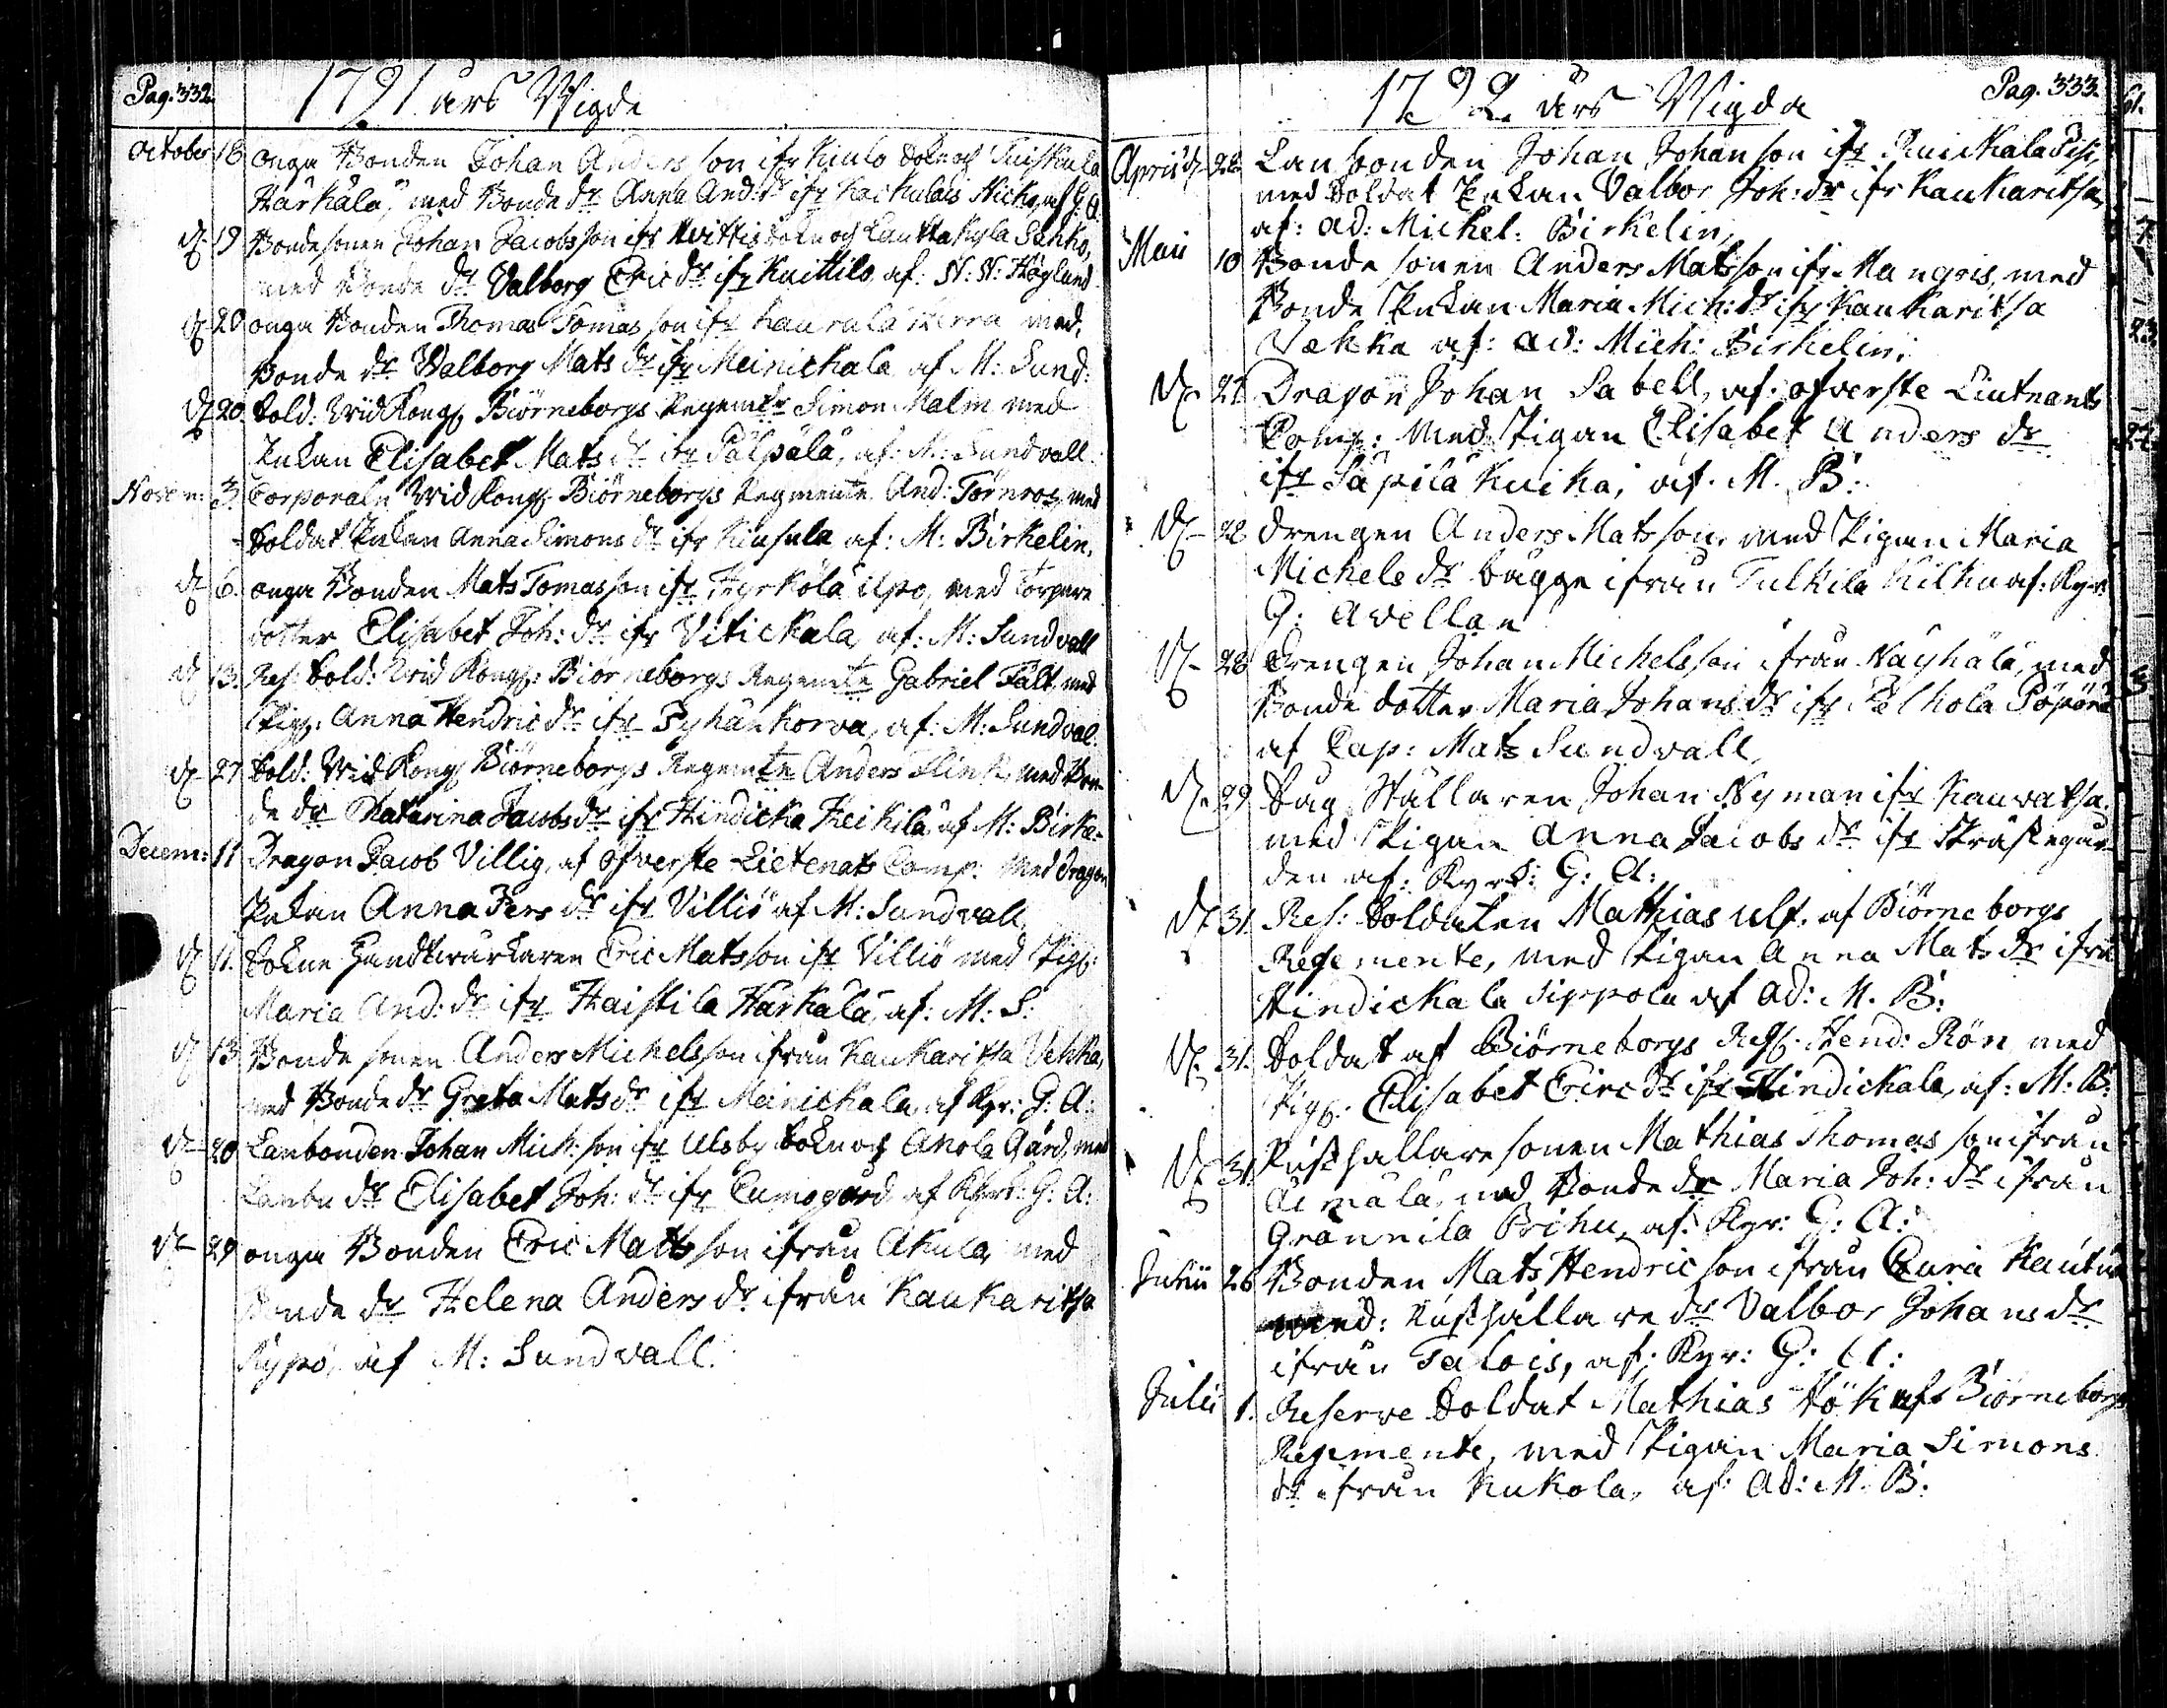 Pag. 332.
1791 års Vigde
October 18 unga Bonden Johan Andersson ifr Kiulo Sokn och Tuiskula
Härkälä, med Bonde dr Anna And: dr ifr Kackulais Nicko, af G: A.
d 19 Bondesonen Johan Jacobsson ifr Hvittis Sokn och Lauttakyla Sahko,
med Bonde dr Valborg Eric dr ifr Kuittilo, af: N: N: Höglund
d 20 unga Bonden Thomas Tomas son ifr Haurala Herra med,
Bonde dr Walborg Mats dr ifr Meinickala af M: Sund:
d 20. Sold: Wid Kongs Biörneborgs Regemte Simon Malm med
Enkan Elisabet Mats dr ifr Pälpälä, af: M: Sundvall.
Novem: 3. Corporaln Wid Kongs Biörneborgs Regmente And: Törnros, med
Soldat Enkan Anna Simons dr ifr Kiusula af: M: Birkelin,
d 6. unga Bonden Mats Tomasson ifr Hyrkölä Upo, med Torpare
dotter Elisabet Joh: dr ifr Vitickala, af: M: Sundvall
d 13. Res: Sold: Wid Kongs: Biörneborgs Regemte Gabriel Fält med
Pig: Anna Hendric dr ifr Pyhänkorva, af: M: Sundval.
d 27 Sold: Wid Kongs Biörneborgs Regemte Anders Flink, med Bon-
de dr Chatarina Jacobs dr ifr Hindicka Heikilä af M: Birke-
Decem: 11 Dragon Jacob Villig, af Öfverste Lietenats Comp: Med Dragon
Enkan Anna Pers dr ifr Villiö af M: Sundvall,
d 11. Sokne Handtvärkaren Eric Matsson ifr Villiö med Pig:
Maria And: dr ifr Haistila Härkälä, af: M: S:
d 13 Bonde sonen Anders Michelsson ifrån Kaukaritsa Vehka,
med Bonde dr Greta Mats dr ifr Meinickala, af Kyr: G: A:
d 20 Lanbonden Johan Mich: son ifr Ulsby Sokn och Anola Gård, med
Lanbo dr Elisabet Joh: dr ifr Cumogård af Kyrk: G: A:
d 29 unga Bonden Eric Mattsson ifrån Akula, med
Bonde dr Helena Anders dr ifrån Kaukaritsa
Rypö, af M: Sundvall.
Pag. 333.
1792 års Vigda
Aprill d 22 Lanbonden Johan Johanson ifr Ruickala
med Soldat Enkan Valbor Joh: dr ifr Kaukaritsa,
af: ad: Michel: Birkelin,
Maii 10 Bonde sonen Anders Matsson ifr Mangris, med
Bonde Enkan Maria Mich: dr ifr Kaukaritsa
Vækka af: ad: Mich: Birkelin;
d 27 Dragon Johan Sabell, af: öfverste Liutnants
Comp: Med Pigan Elisabet Anders dr
ifr Säpilä Kuika, af. M. B:
d 28 drengen Anders Matsson, med Pigan Maria
Michels dr bägge ifrån Tulkila Kilku af: Kyr:
G: Avellan
d 28 Drengen Johan Michelsson ifrån Näyhälä, med
Bonde dotter Maria Johans dr ifr Pälhola Pöpönä
af Cap: Mats Sundvall,
d 29 Sag Ställaren Johan Nyman ifr Kauvatsa,
med Pigan Anna Jacobs dr ifr Prästegår-
den af: Kyrk: G: A:
d 31 Res: Soldaten Mathias Ulf. af Biörneborgs
Regemente, med Pigan Anna Mats dr ifrå
Hindickala Sippola af Ad: M. B:
d 31. Soldat af Biörneborgs Reg: Hend: Rön, med
Pig: Elisabet Eric dr ifr Hindickala, af: M: B:
d 31. Rusthallare sonen Mathias Thomas son ifrån
Äimälä, med Bonde dr Maria Joh: dr ifrån
Grannila Prihu, af: Kyr: G: A:
Junii 26 Bonden Mats Hendricson ifrån Eura Kautua
med: Rusthållare dr Valbor Johans dr
ifrån Talois, af: Kyr: G: A:
Julii 1. Reserve Soldat Mathias Hök af Biörneborgs
Regemente, med Pigan Maria Simons
dr ifrån Kukola, af: Ad: M. B: